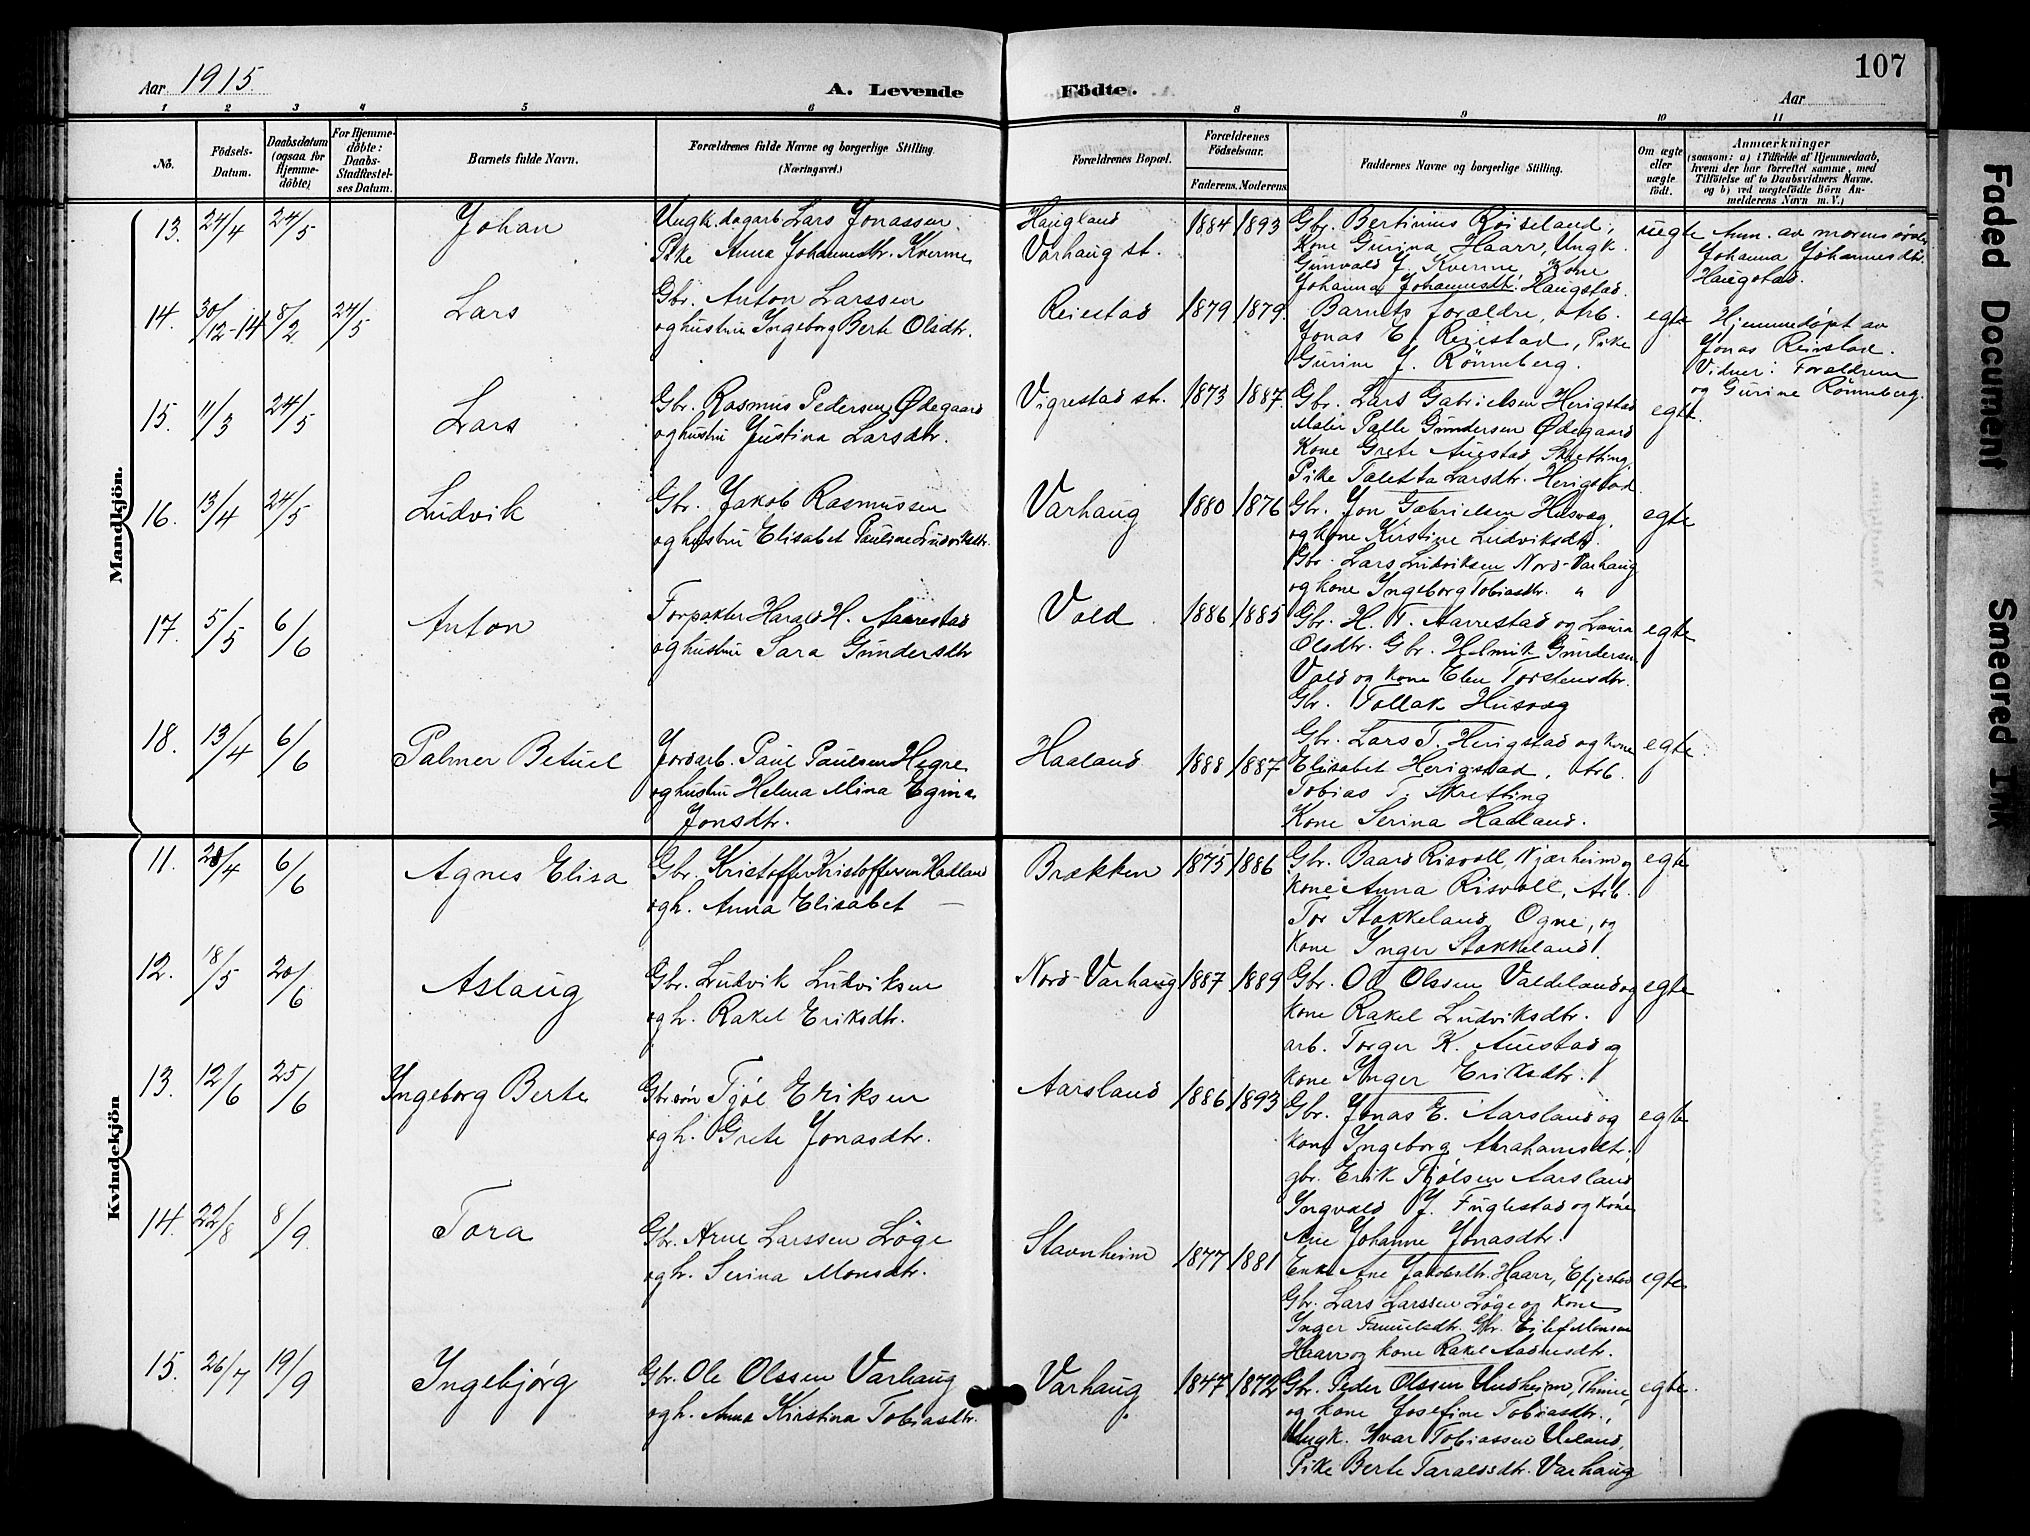 Aar 1915
A. Levende Födte.
107
Aar
1 2 3 4 5 6 8 9 10 11
Nö.
Födsels-Datum.
Daabsdatum (ogsaa for Hjemmedöbte)
For Hjemmedöbte: Daabs-Stadfæstelses Datum.
Barnets fulde Navn.
Forældrenes fulde Navne og borgerlige Stilling. (Næringsvei.)
Forældrenes Bopæl.
Forældrenes Födselsaar.
Faderens. Moderens.
Faddernes Navne og borgerlige Stilling.
Om ægte eller uægte födt.
Anmærkninger
(saasom: a) i Tilfælde af Hjemmedaab,
hvem der har forrettet samme, med
Tilföielse af to Daabsvidners Navne,
og b) ved uegtefödte Börn Anmelderens Navn m. V.)
Mandkjön.
13. 24/4 24/5 Johan
Ungk. dagarb. Lars Jonassen.
Pike Anna Johannesdtr. Kverme
Haugland
Varhaug st.
1884 1893
Gbr. Bertinius Röiseland,
Kone Gurina Haarr, Ungk.
Gunvald J. Kverme, Kone
Johanna Johannesdtr. Haugstad.
uegte
Anm. av morens
Johanna Johannesdtr.
Haugstad.
14. 30/12-14 8/2 24/5 Lars
Gbr. Anton Larssen
og hustru Ingeborg Berte Olsdtr.
Reiestad 1879 1879.
Barnets forældre, Arb.
Jonas E. Reiestad, Pike
Gurine J. Rönneberg.
egte
Hjemmedöpt av
Jonas Reiestad.
Vidner: Forældrene
og Gurine Rönneberg.
15. 11/3 24/5 Lars
Gbr. Rasmus Pedersen Ødegaard
og hustru Justina Larsdtr.
Vigrestad st. 1873 1887.
Gbr. Lars Gabrielsen Herigstad
Maler Palle Gundersen Ødegaard
Kone Grete Auestad Skretting.
Pike Taletta Larsdtr. Herigstad
egte.
16. 13/4 24/5 Ludvik
Gbr. Jakob Rasmussen
og hustru Elisabet Pauline Ludviksdtr.
Varhaug 1880 1876
Gbr. Jon Gabrielsen Husvæg,
og Kone Kirstine Ludviksdtr.
Gbr. Lars Ludviksen Nord-Varhaug
og kone Ingeborg Tobiasdtr. "
egte
17. 5/5 6/6 Anton
Forpakter Harald H. Aarrestad
og hustru Sara Gundersdtr
Vold 1886 1885
Gbr. H. T. Aarrestad og Laura
Olsdtr. Gbr. Helmik Gundersen
Vold og kone Elen Torstensdtr.
Gbr. Tollak Husvæg
egte
18. 13/4 6/6 Palmer Betuel
Jordarb. Paul Paulsen Hegre
og hustru Helena Mina Egina
Jonsdtr.
Haaland 1888 1887
Gbr. Lars T. Herigstad og kone
Elisabet Herigstad, Arb.
Tobias T. Skretting
Kone Serina Haaland.
egte
Kvindekjön
11. 28/4 6/6 Agnes Elisa
Gbr. Kristoffer Kristoffersen Hadland
og h. Anna Elisabet —
Brækken 1875 1886
Gbr. Baard Risvoll, Njærheim og
kone Anna Risvoll, Arb.
Tor Stokkeland, Ogne, og
kone Inger Stokkeland.
egte
12. 18/5 20/6 Aslaug
Gbr. Ludvik Ludviksen
og h. Rakel Eriksdtr.
Nord-Varhaug 1887 1889
Gbr. Ol Olssen Valdeland og
kone Rakel Ludviksdtr.
arb. Torger K. Auestad og
kone Inger Eriksdtr.
egte
13. 12/6 25/6 Ingeborg Berte
Gbr.sön Tjöl Eriksen
og h. Grete Jonasdtr.
Aarsland 1886 1893
Gbr. Jonas E. Aarsland og
kone Ingeborg Abrahamsdtr.
gbr. Erik Tjölsen Aarsland
Ingvald J. Fuglestad og kone
Ane Johanne Jonasdtr.
egte
14. 22/8 8/9 Tora
Gbr. Arne Larssen Löge
og h. Serina Monsdtr.
Stavnheim 1877 1881
Enke Ane Jakobsdtr. Haarr,
Gbr. Lars Larssen Löge og kone
Inger Samuelsdtr. Gbr. Eilef Monsen
Haarr og kone Rakel Aadnesdtr.
egte
15. 26/7 19/9 Ingebjörg
Gbr. Ole Olssen Varhaug
og h. Anna Kirstina Tobiasdtr.
Varhaug. 1847 1872
Gbr. Peder Olssen Undheim, Thime,
og kone Josefine Tobiasdtr.,
Ungk. Ivar Tobiassen Ueland,
Pike Berte Taraldsdtr. Varhaug
egte.
Faded Document
Smeared Ink